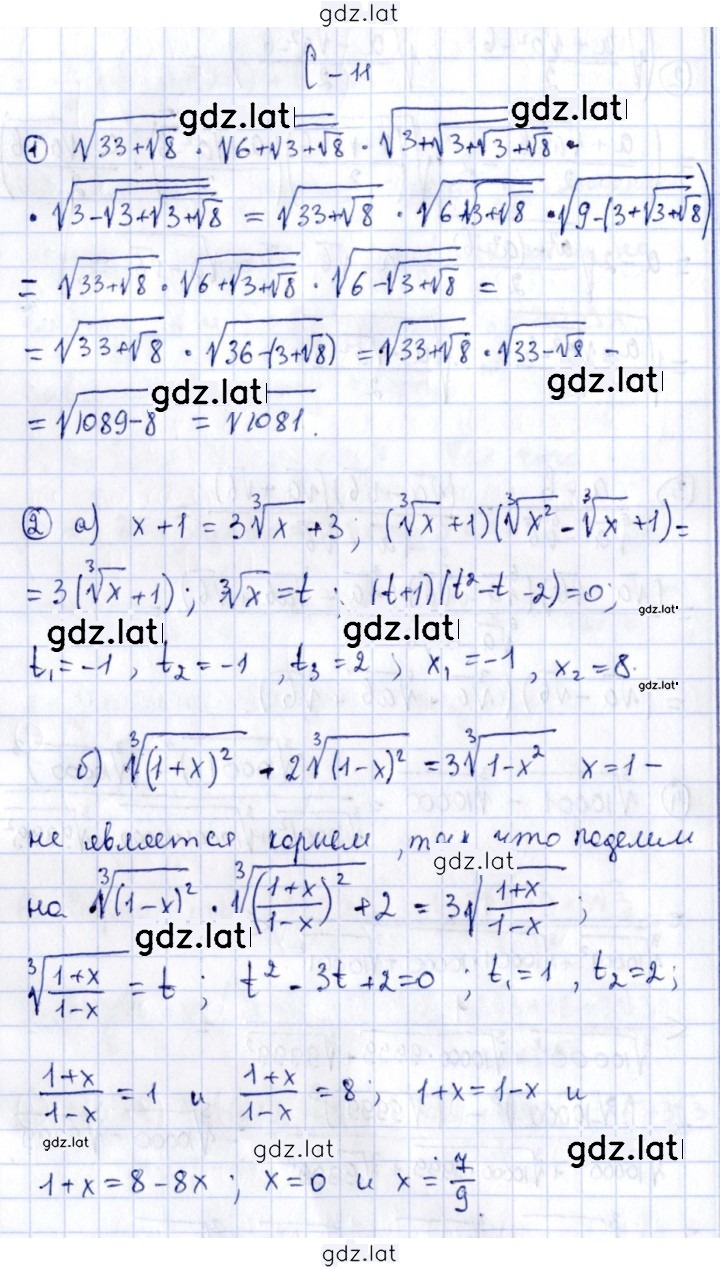 gdz.lat
С-11
gdz.lat gdz.lat
① √(33+√8) · √(6+√(3+√8)) · √(3+√(3+√(3+√8))) ·
· √(3-√(3+√(3+√8))) = √(33+√8) · √(6+√(3+√8)) · √(9-(3+√(3+√8)))
= √(33+√8) · √(6+√(3+√8)) · √(6-√(3+√8)) =
= √(33+√8) · √(36-(3+√8)) = √(33+√8) · √(33-√8) =
gdz.lat gdz.lat
= √(1089-8) = √1081.
② а) x+1 = 3∛x +3; (∛x +1)(∛x² - ∛x +1) =
= 3(∛x +1); ∛x = t; (t+1)(t²-t-2)=0; gdz.lat
gdz.lat gdz.lat
t₁=-1, t₂=-1, t₃=2; x₁=-1, x₂=8. gdz.lat
б) ∛(1+x)² + 2∛(1-x)² = 3∛(1-x²) x=1 –
не является корнем, так что поделим
gdz.lat
на ∛(1-x)² · ∛((1+x)/(1-x))² + 2 = 3∛((1+x)/(1-x));
gdz.lat
∛((1+x)/(1-x)) = t; t²-3t+2=0; t₁=1, t₂=2;
(1+x)/(1-x) = 1 и (1+x)/(1-x) = 8; 1+x=1-x и
gdz.lat gdz.lat gdz.lat
1+x=8-8x; x=0 и x=7/9.
gdz.lat